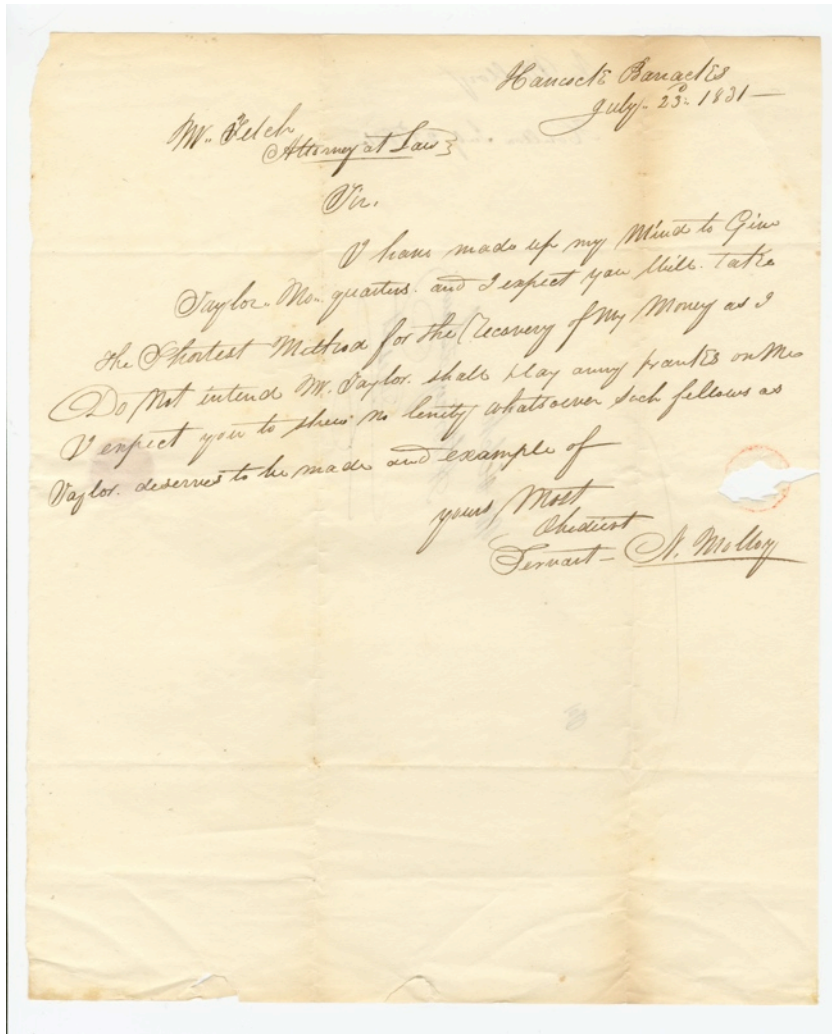 Hancock Barracks
July. 23d. 1831 —
Mr. Felch
Attorney at Law }
Sir.
I have made up my Mind to Give
Taylor. No. quarters. and I expect you Will. Take
the Shortest Method for the Recovery of My Money as I
Do Not intend Mr. Taylor. shall play anny prankes on Me
I expect you to shew no lenity whatsoever Such fellows as
Taylor. deserves to be made and example of
yours Most
Obedient
Servant — N. Molloy